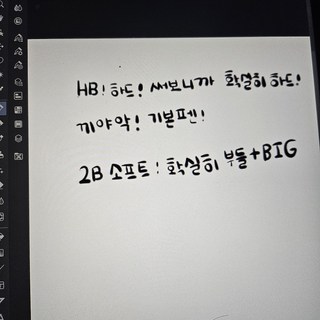 HB! 하드! 써보니까 확실히 하드!
끼야악! 기본펜!
2B 소프트! 확실히 부들+BIG